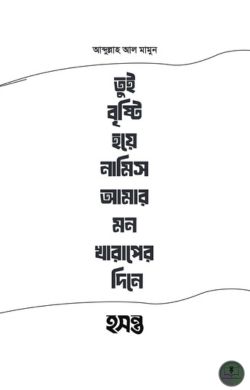 আব্দুল্লাহ আল মামুন
তুই
বৃষ্টি
হয়ে
নামিস
আমার
মন
খারাপের
দিনে
হসন্ত